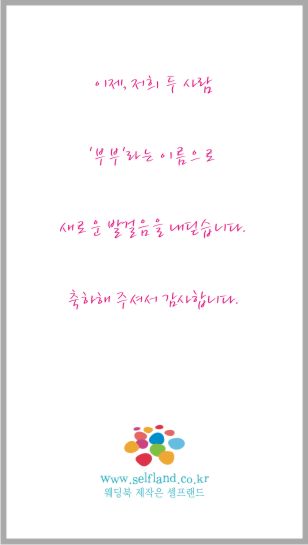 이제, 저희 두 사람
'부부'라는 이름으로
새로운 발걸음을 내딛습니다.
축하해 주셔서 감사합니다.
www.selfland.co.kr
웨딩북 제작은 셀프랜드